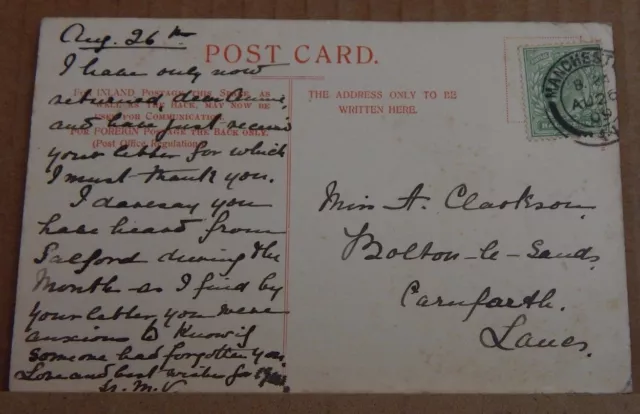 Aug. 26th
POST CARD.
I have only now
returned, dear Annie,
and have just received
your letter for which
I must thank you.
I daresay you
have heard from
Salford during the
Month as I find by
your letter, you were
anxious to know if
someone had forgotten you.
Love and best wishes for
M. V.
FOR INLAND POSTAGE THIS SPACE, AS
WELL AS THE BACK, MAY NOW BE
USED FOR COMMUNICATION.
FOR FOREIGN POSTAGE THE BACK ONLY.
(Post Office Regulation).
THE ADDRESS ONLY TO BE
WRITTEN HERE.
MANCHESTER
AU 26
Miss A. Clarkson.
Bolton-le-Sands.
Carnforth.
Lancs.